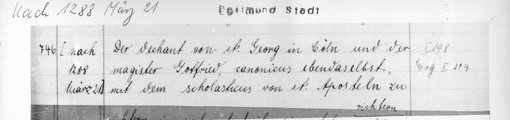 Nach 1288 März 21
Dortmund Stadt
746 [nach 1288 März 21]
Der Dechant von st. Georg in Cöln und der
magister Gotfried, canonicus ebendaselbst,
mit dem scholasticus von st. Aposteln zu
richtern
I 198
Georg I 204